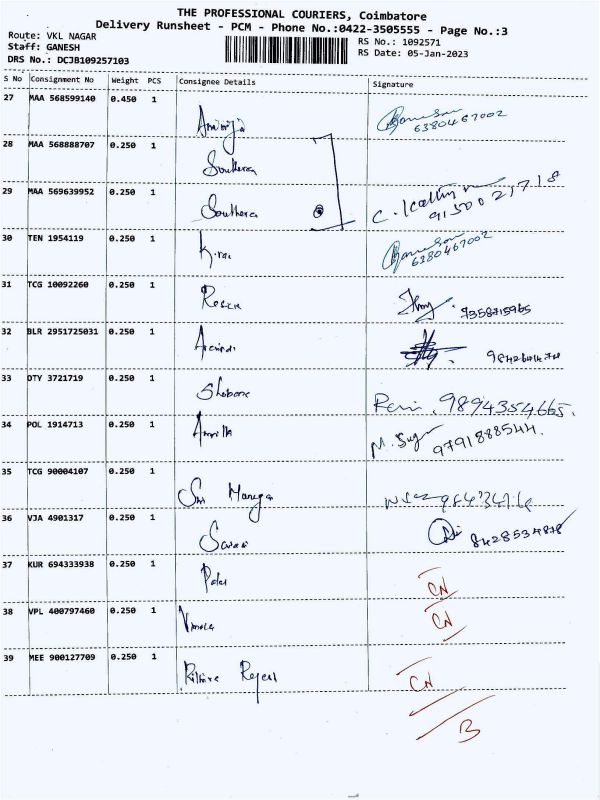 THE PROFESSIONAL COURIERS, Coimbatore
Delivery Runsheet - PCM - Phone No.:0422-3505555 - Page No.:3
Route: VKL NAGAR
Staff: GANESH
DRS No.: DCJB109257103
RS No.: 1092571
RS Date: 05-Jan-2023
S No Consignment No Weight PCS Consignee Details Signature
27 MAA 568599140 0.450 1
6380467002
28 MAA 568888707 0.250 1 Southern
29 MAA 569639952 0.250 1 Southern
9150021718
30 TEN 1954119 0.250 1 Kiran
6380467002
31 TCG 10092260 0.250 1
9358715965
32 BLR 2951725031 0.250 1
33 OTY 3721719 0.250 1 Shobana
9894354665.
34 POL 1914713 0.250 1
9791888544.
35 TCG 90004107 0.250 1 Sri Muruga
36 VJA 4901317 0.250 1
8428534878
37 KUR 694333938 0.250 1
CN
38 VPL 400797460 0.250 1 Vimala
CN
39 MEE 900127709 0.250 1
CN
B